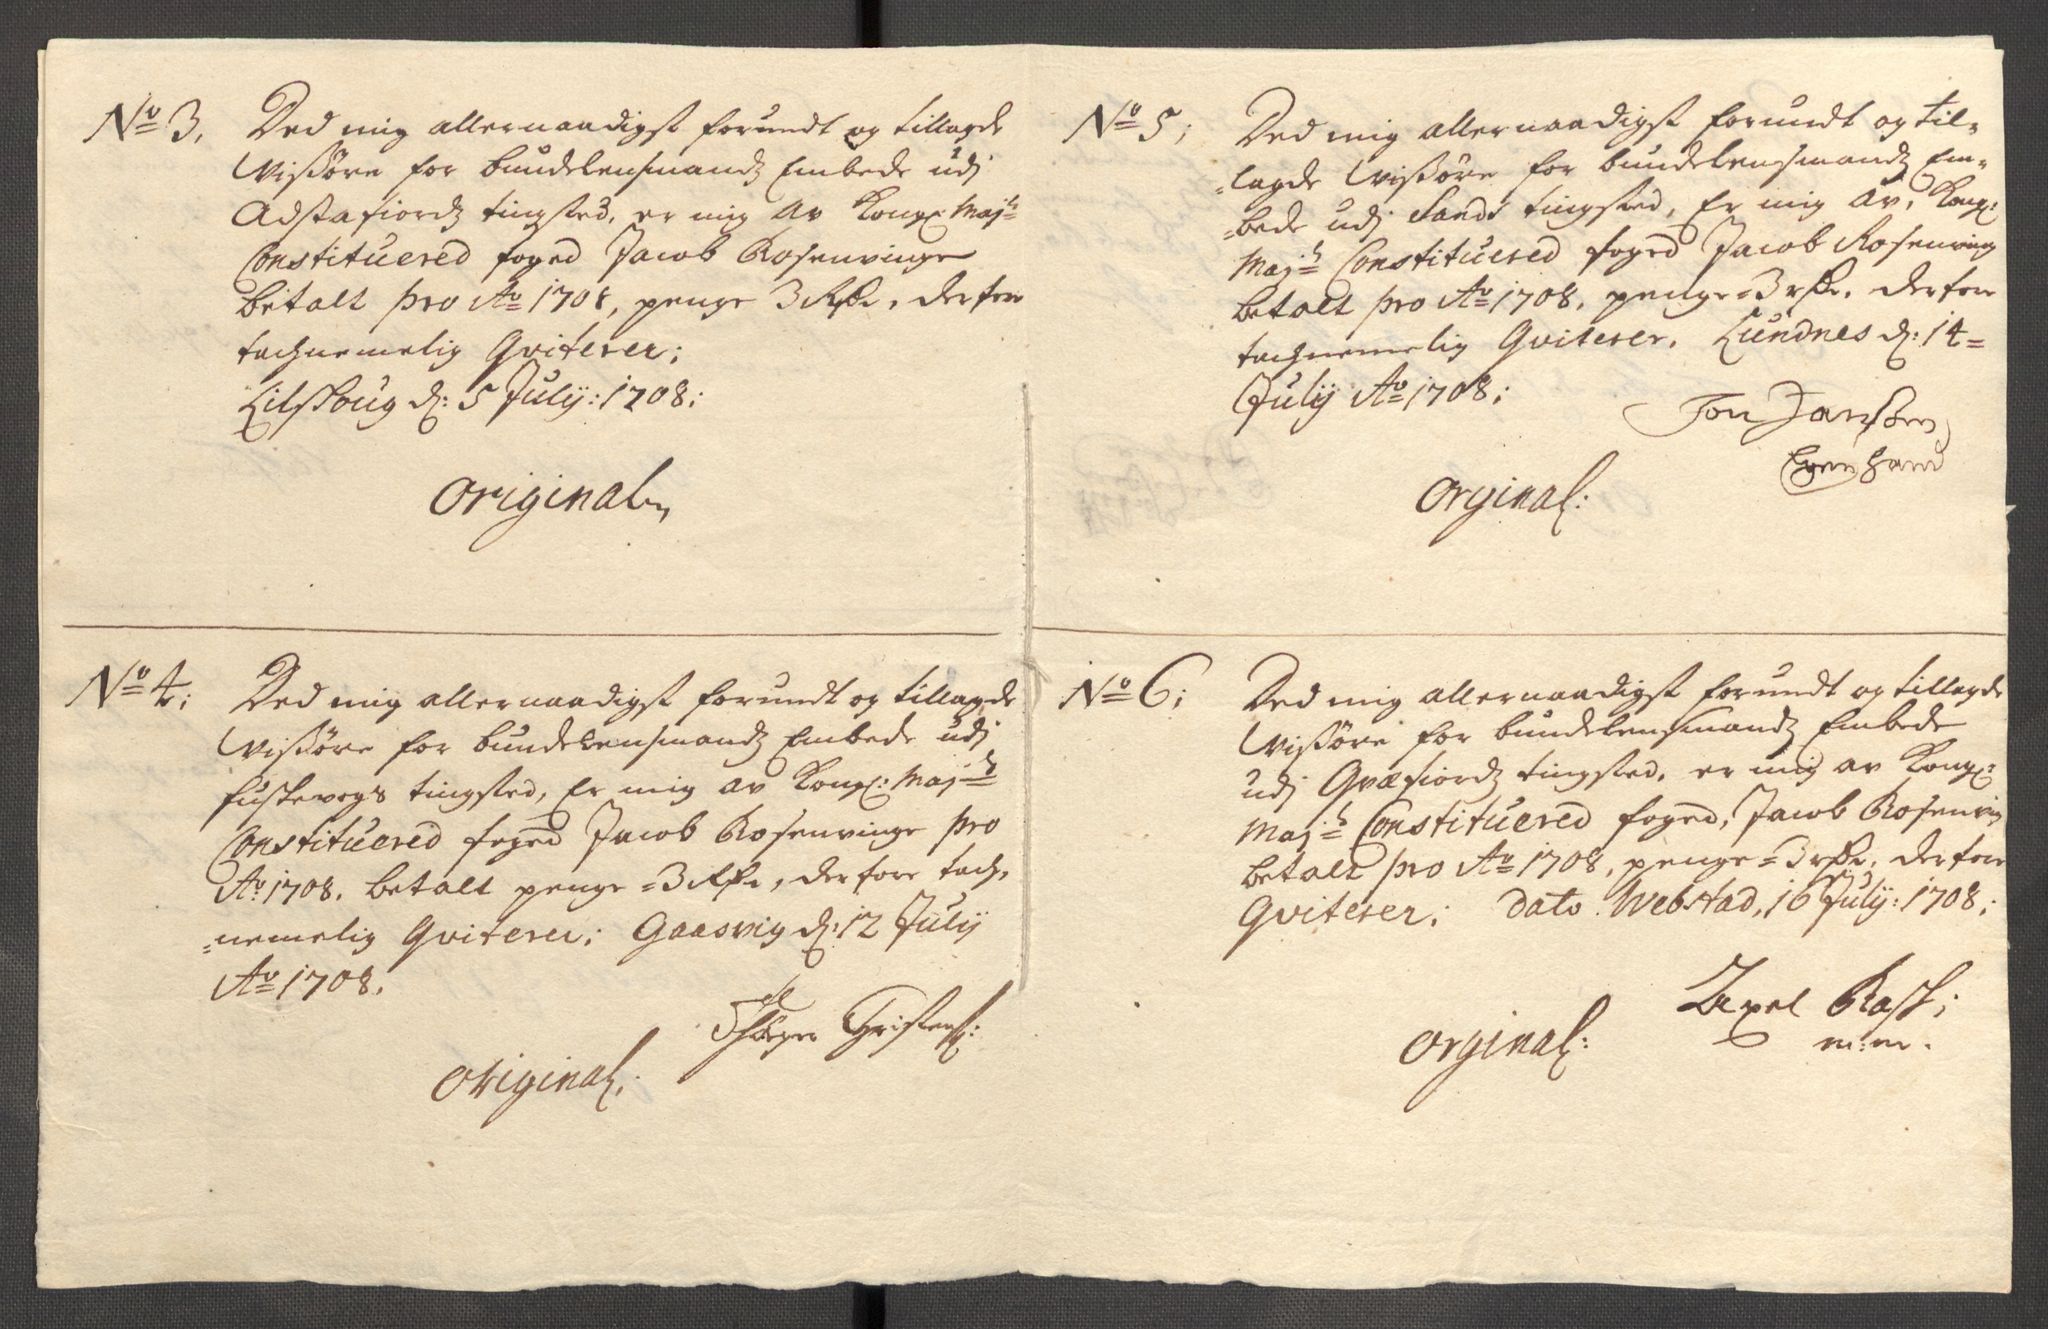 No 3. Ded mig allernaadigst forundt og tillagde
Wissöre for bundelensmandz Embede udj
Adstafiordz tingsted, er mig av Kongl: Maj:ts
Constituered foged Jacob Rosenvinge
betalt pro Ao 1708, penge 3 Rdr, derfore
tachnemelig Qviterer;
d: 5 Julij: 1708;
Original
No 4; Ded mig allernaadigst forundt og tillagde
Wissöre for bundelensmandz Embede udj
fuskevogs tingsted, Er mig av Kongl: Maj:ts
Constituered foged Jacob Rosenvinge pro
Ao 1708. betalt penge =3 Rdr, derfore tach,
=nemelig Qviterer; Gaasvig d: 12 Julij
Ao 1708.
Original;
No 5; Ded mig allernaadigst forundt og til=
=lagde Wissöre for bundelensmandz Em=
=bede udj Sands tingsted, Er mig av, Kongl:
Maj:ts Constituered foged Jacob Rosenving
betalt pro Ao 1708, penge =3 rdr. derfore
tachnemelig Qviterer. Lundnes d: 14=
Julij Ao 1708;
Jon Jonssen
Egen hand
Orginal:
No 6; Ded mig allernaadigst forundt og tillagde
Wissöre for bundelensmandz Embede
udj Qvæfiordz tingsted, er mig av Kongl:
Maj:ts Constituered foged, Jacob Rosenvin
betalt pro Ao 1708, penge =3 rdr, derfore
Qviterer; Dato Webstad, 16 Julij: 1708;
Axel Rasch;
m:m.
Orginal: